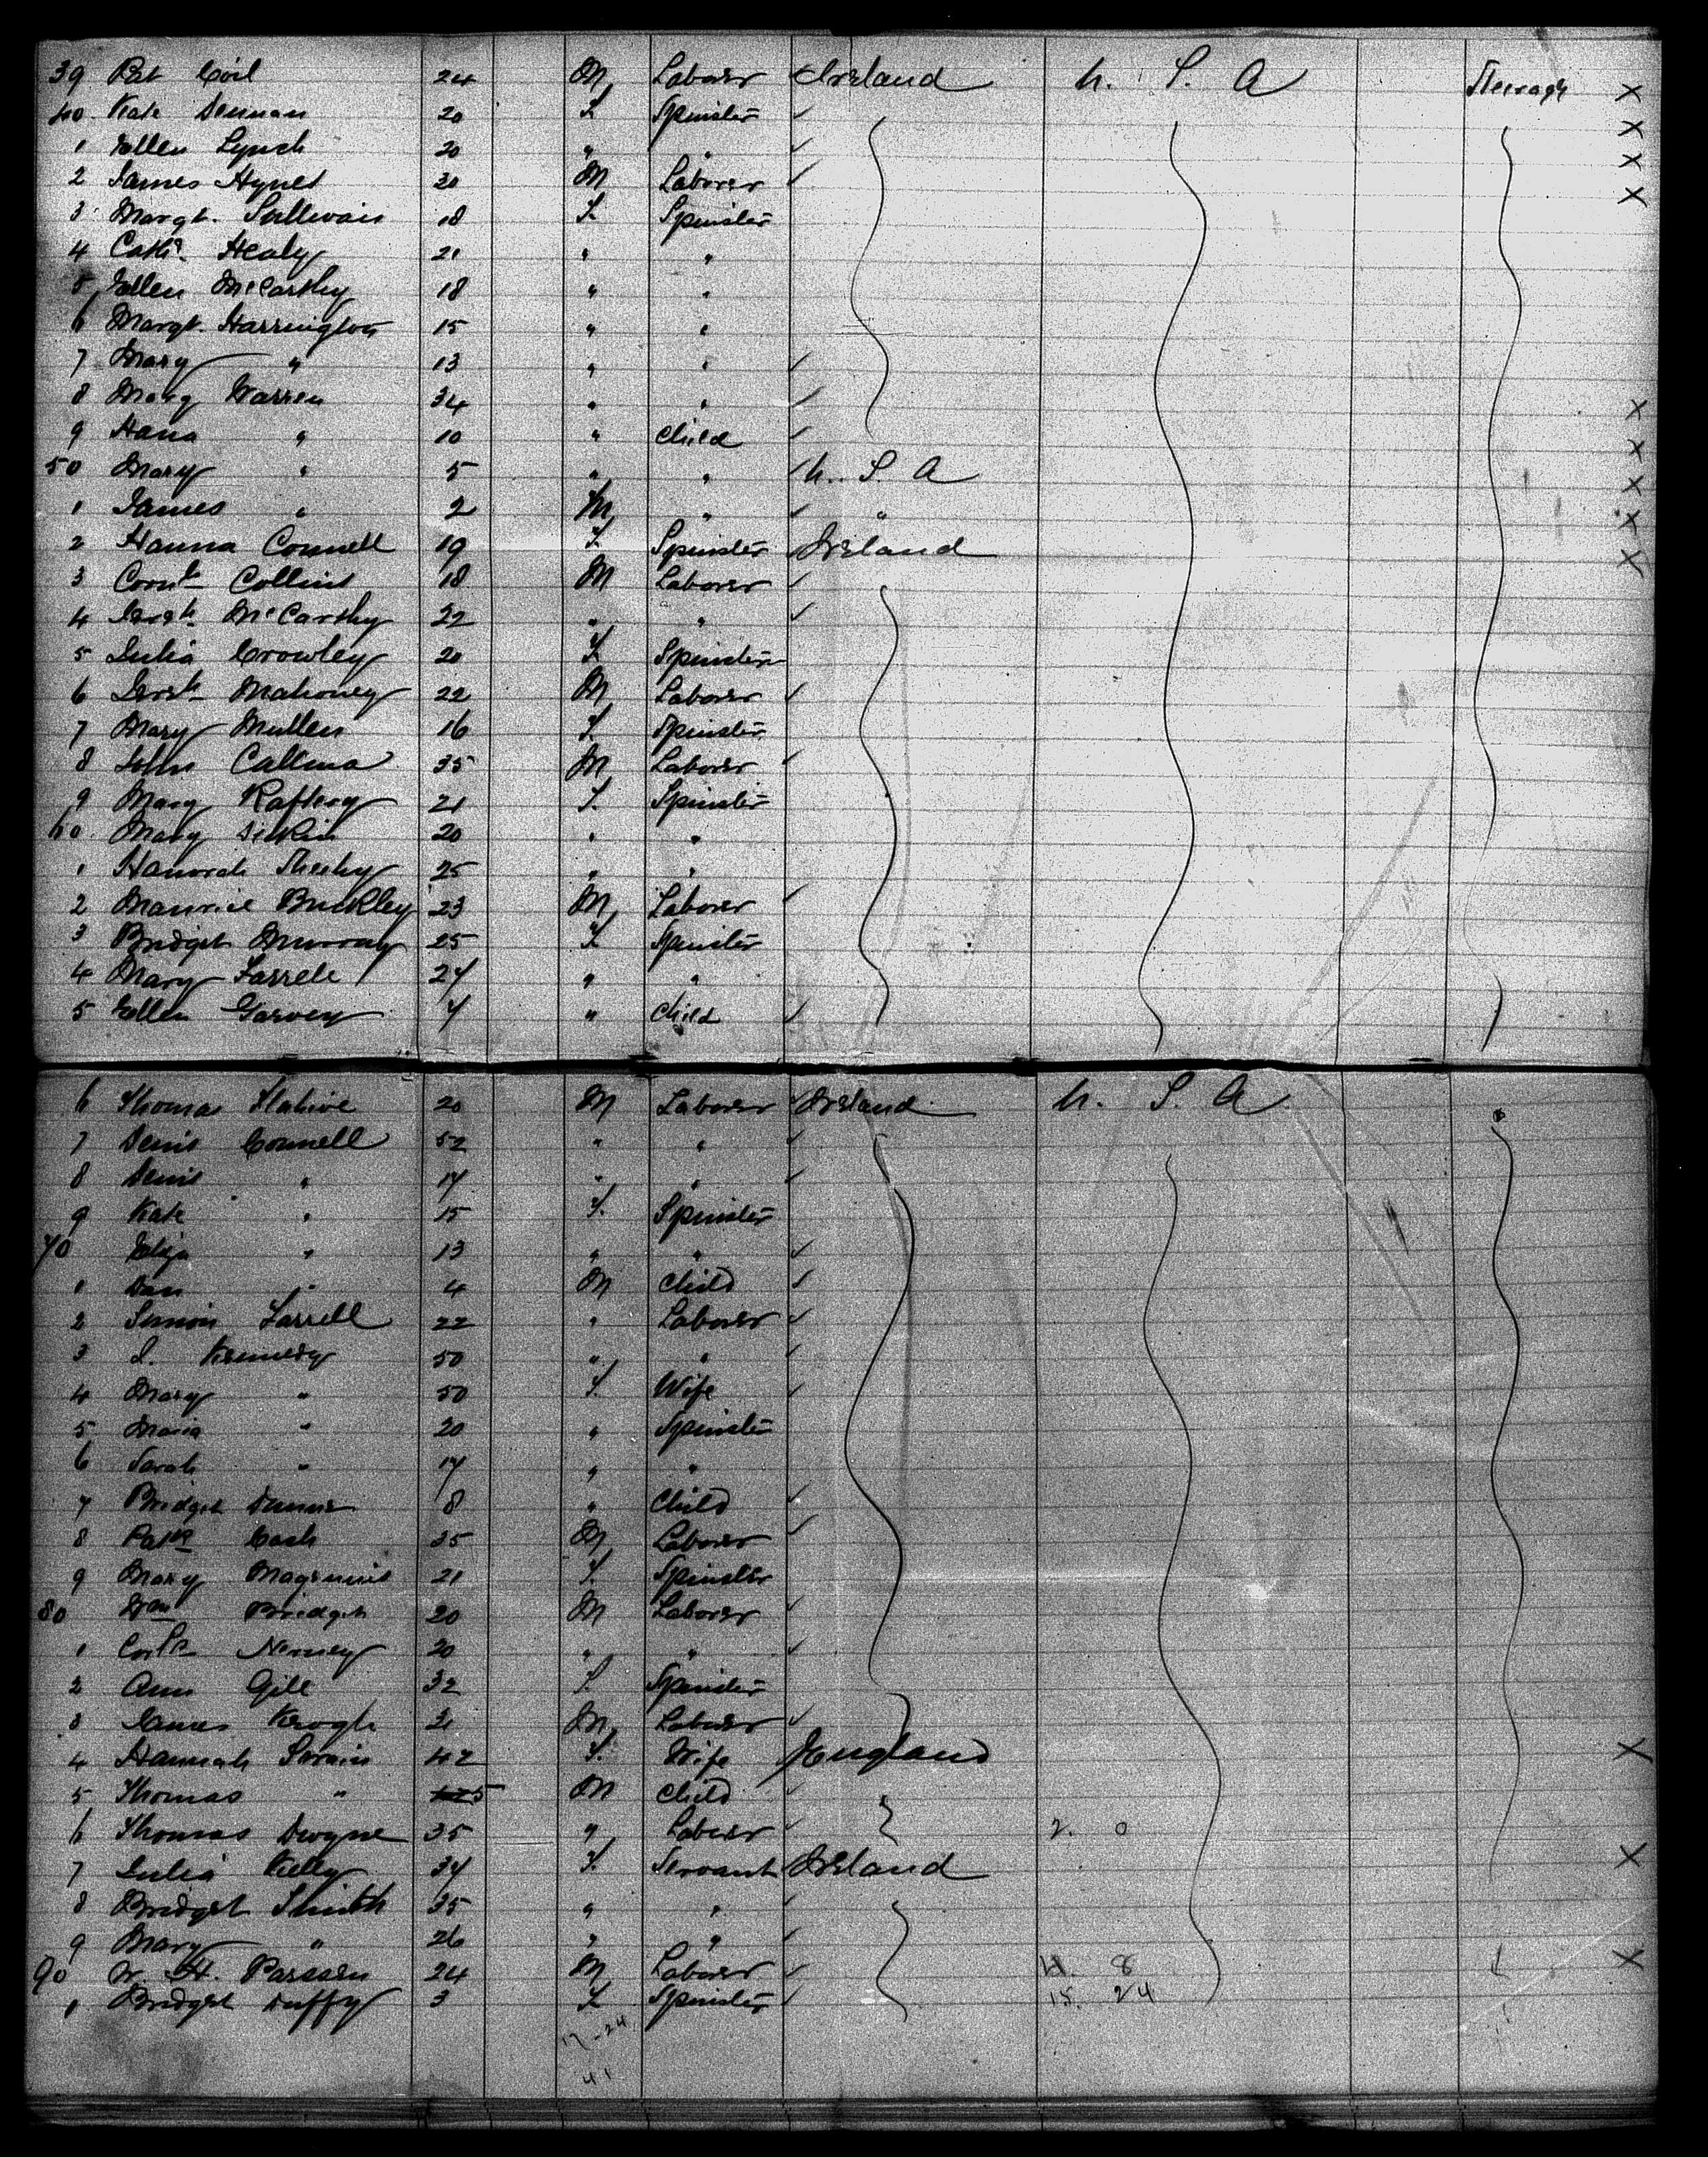 39 Pat Coil 24 M Laborer Ireland U. S. A Steerage X
40 Kate 20 F Spinster ✓ X
1 Ellen Lynch 20 " " ✓ X
2 James Hynes 20 M Laborer ✓ X
3 Margt. Sullivan 18 F Spinster
4 Cath. Healy 21 " "
5 Ellen McCarthy 18 " "
6 Margt. Harrington 15 " "
7 Mary " 13 " " ✓
8 Mary Warren 34 " " ✓ X
9 Hana " 10 " Child ✓ X
50 Mary " 5 " " ✓ U. S. A X
1 James " 2 M " ✓ " X
2 Hanna Connell 19 F Spinster Ireland X
3 Corn. Collins 18 M Laborer ✓
4 McCarthy 22 " " ✓
5 Julia Crowley 20 F Spinster
6 Mahoney 22 M Laborer ✓
7 Mary Mullen 16 F Spinster
8 John 35 M Laborer ✓
9 Mary Raftery 21 F Spinster
60 Mary 20 " "
1 Hanorah Sheehy 25 " "
2 Maurice Buckley 23 M Laborer ✓
3 Bridget Murray 25 F Spinster
4 Mary Farrell 27 " "
5 Ellen Garvey 7 " Child ✓
6 Thomas 20 M Laborer Ireland U. S. A "
7 Denis Connell 52 " " ✓
8 Denis " 17 " " ✓
9 Kate " 15 F Spinster
70 Eliza " 13 " " ✓
1 Dan " 4 M Child ✓
2 Simon Farrell 22 " Laborer ✓
3 Kennedy 50 " " ✓
4 Mary " 50 F Wife ✓
5 Maria " 20 " Spinster
6 Sarah " 17 " "
7 Bridget 8 " Child ✓
8 Patk Cash 35 M Laborer ✓
9 Mary Magennis 21 F Spinster
80 Wm Bridget 20 M Laborer ✓
1 Nerney 20 " " ✓
2 Ann Gill 32 F Spinster
3 James Keogh 21 M Laborer ✓
4 Hannah Swain 42 F Wife England X
5 Thomas " 5 M Child ✓
6 Thomas Dwyne 35 " Laborer ✓ 2. 0
7 Julia Kelly 34 F Servant Ireland X
8 Bridget Smith 35 " " ✓
9 Mary " 26 " " ✓
90 W. H. 24 M Laborer ✓ 8 X
1 Bridget Duffy 3 F Spinster ✓ 15. 24
17-24
41